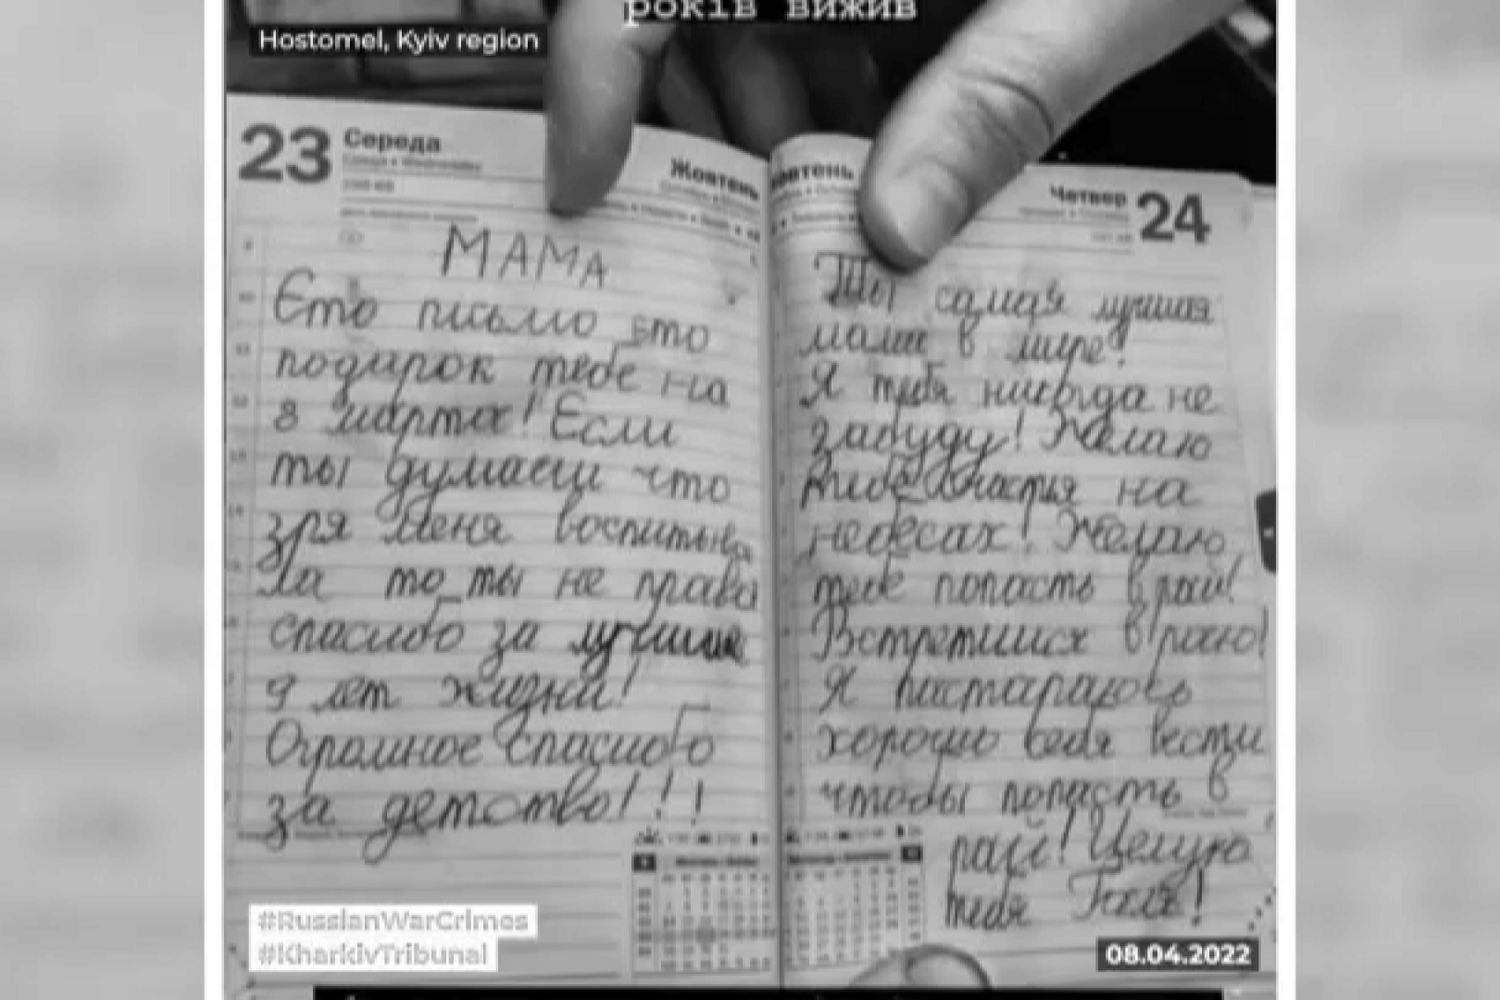 років вижив
Hostomel, Kyiv region
23 Середа
Жовтень
МАМА
Єто письмо ето
подарок тебе на
8 марта! Если
ты думаеш что
зря меня воспитыва
ла то ты не права
спасибо за лучшие
9 лет жизни!
Огромное спасибо
за детство!!!
#RussianWarCrimes
#KharkivTribunal
овтень
Четвер 24
Ты самая лучшая
мама в мире!
Я тебя никогда не
забуду! Желаю
тебе счастья на
небесах! Желаю
тебе попасть в рай!
Встретимся в раю!
Я пастараюсь
хорошо себя вести
чтобы попасть в
рай! Целую
тебя Галя!
08.04.2022